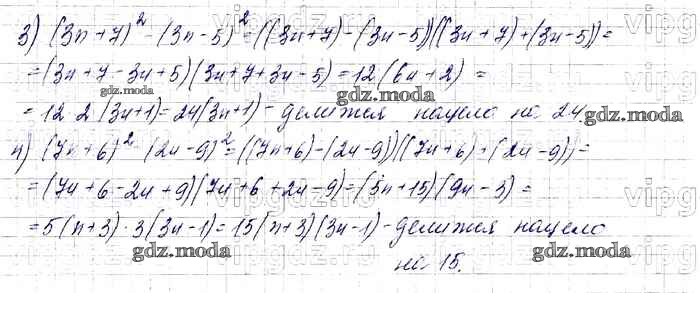 3) (3n+7)² - (3n-5)² = ((3n+7) - (3n-5))((3n+7) + (3n-5)) =
= (3n+7-3n+5)(3n+7+3n-5) = 12(6n+2) =
gdz.moda
= 12·2(3n+1) = 24(3n+1) - делится нацело на 24
gdz.moda
4) (7n+6)² - (2n-9)² = ((7n+6) - (2n-9))((7n+6) + (2n-9)) =
gdz.moda
= (7n+6-2n+9)(7n+6+2n-9) = (5n+15)(9n-3) =
= 5(n+3)·3(3n-1) = 15(n+3)(3n-1) - делится нацело
gdz.moda
gdz.moda
на 15.